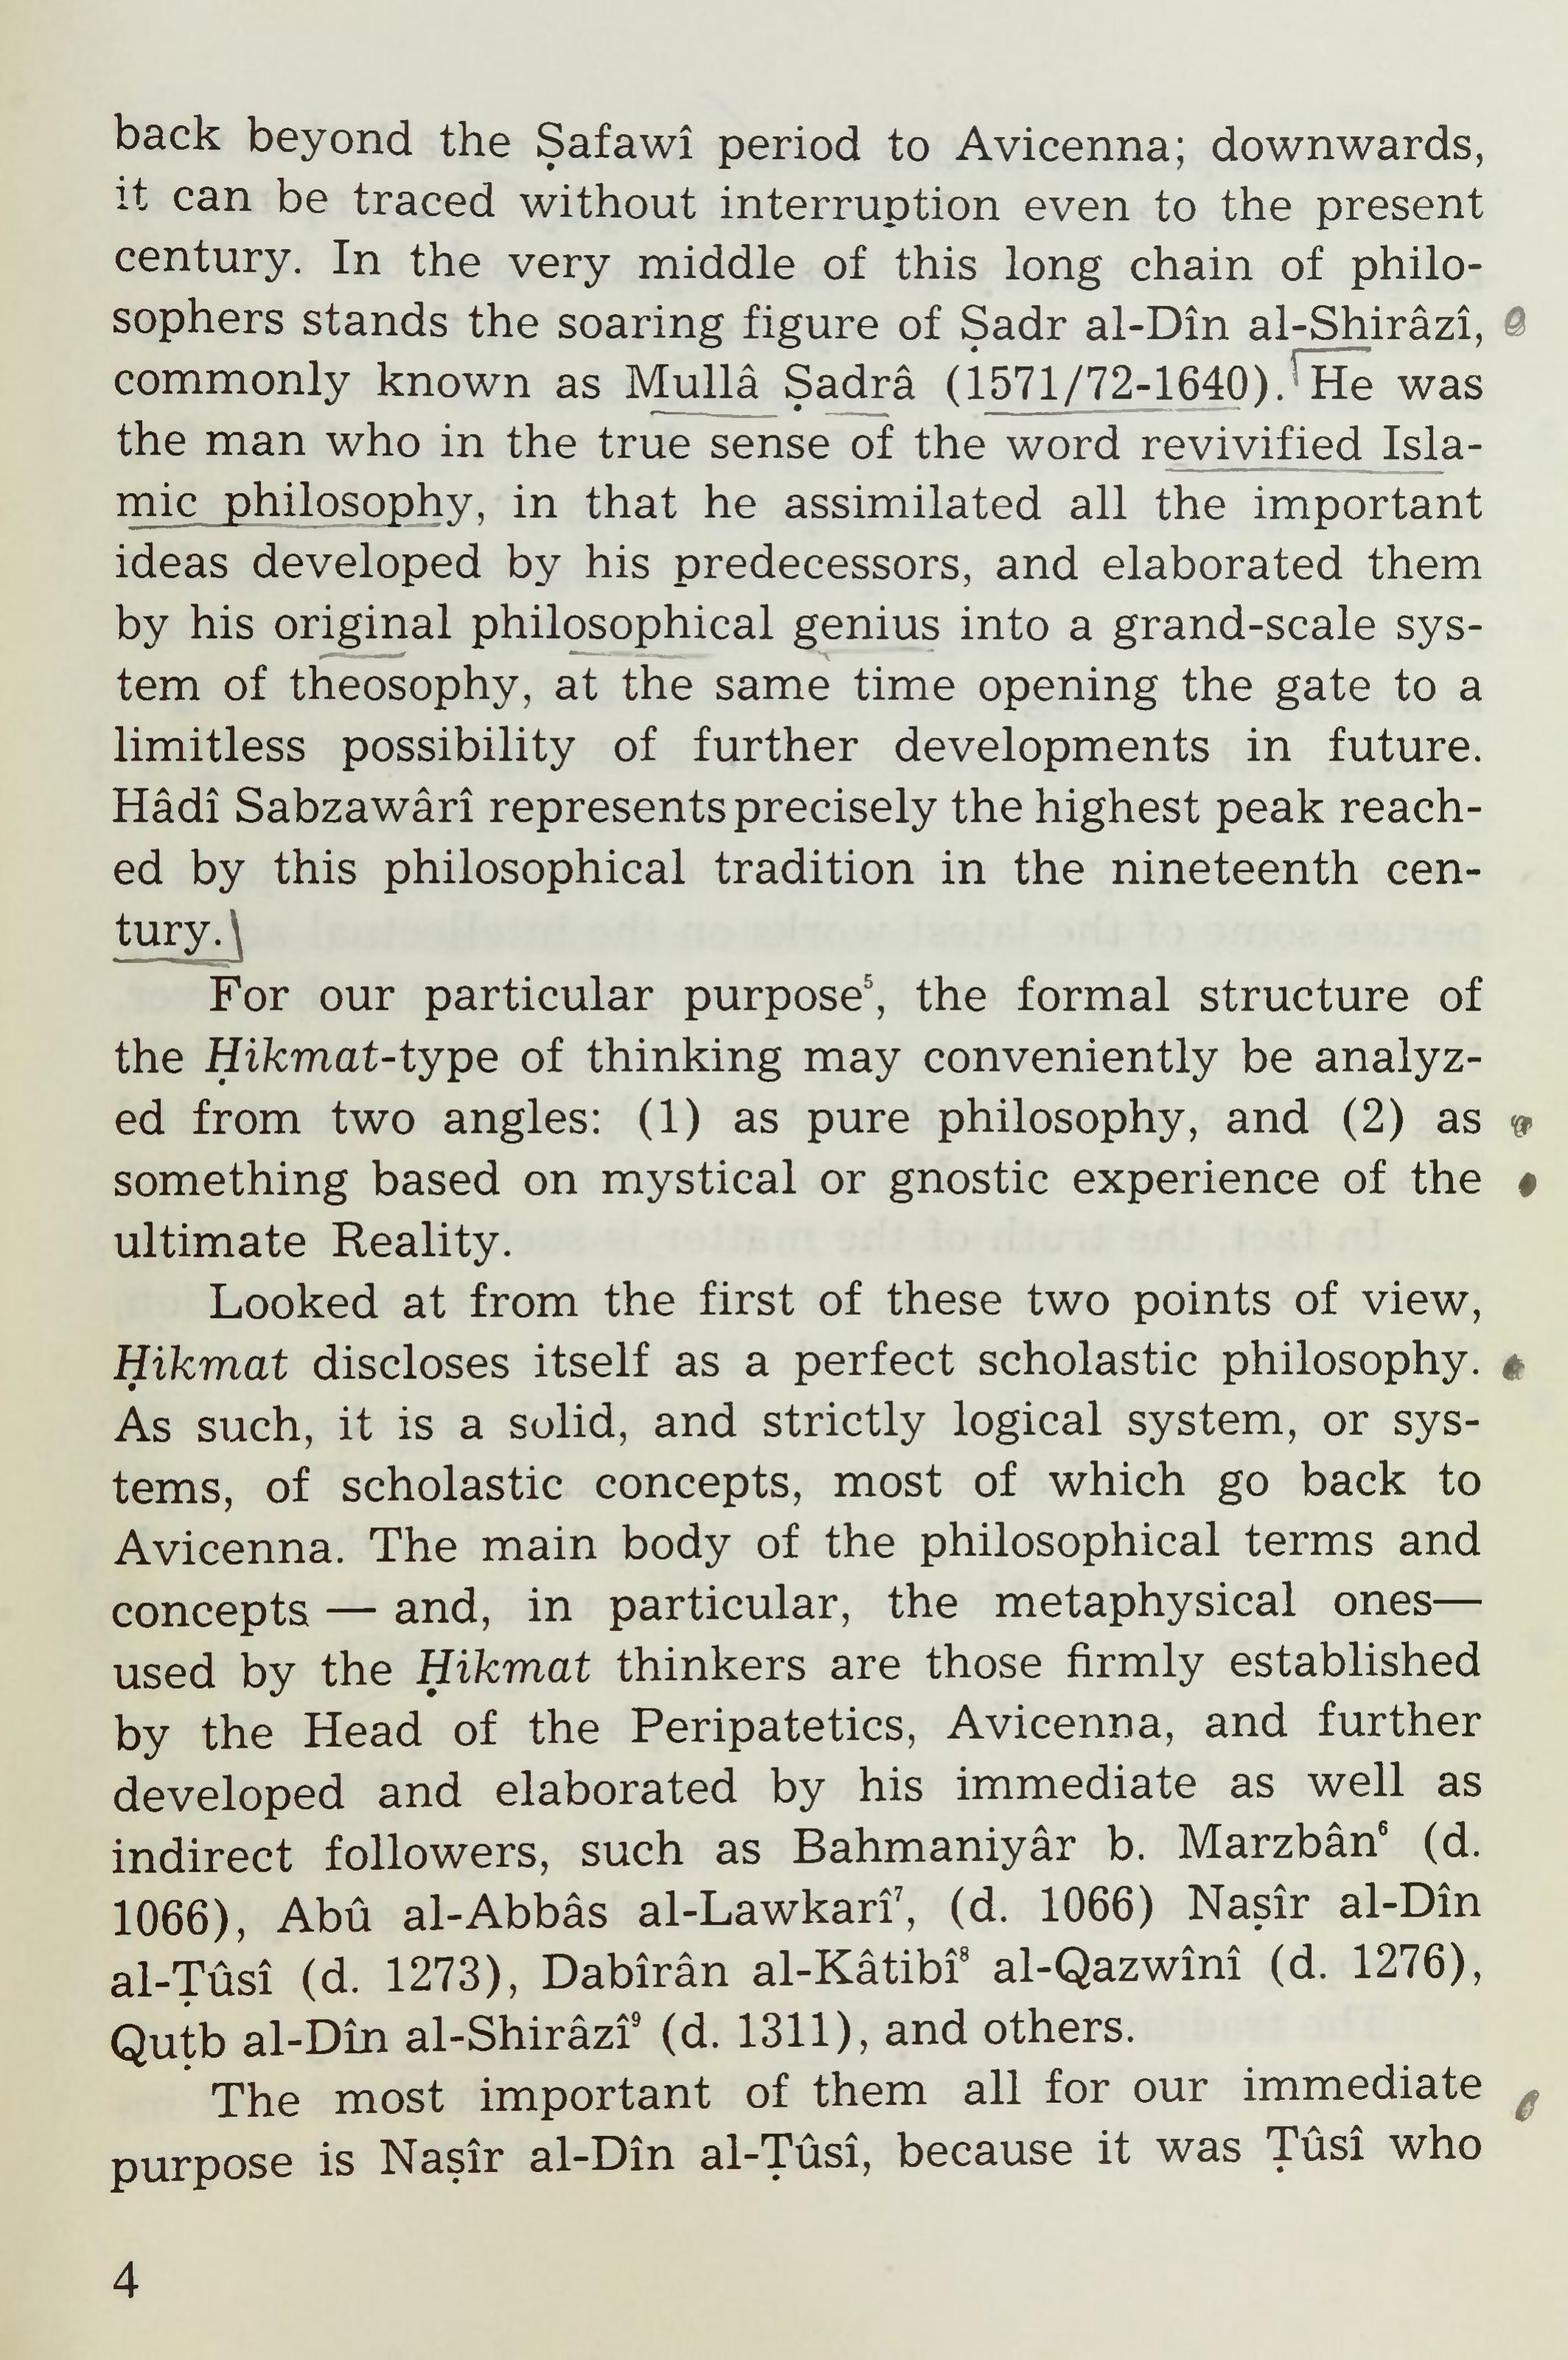 back beyond the Ṣafawî period to Avicenna; downwards,
it can be traced without interruption even to the present
century. In the very middle of this long chain of philo-
sophers stands the soaring figure of Ṣadr al-Dîn al-Shirâzî,
commonly known as Mullâ Ṣadrâ (1571/72-1640). He was
the man who in the true sense of the word revivified Isla-
mic philosophy, in that he assimilated all the important
ideas developed by his predecessors, and elaborated them
by his original philosophical genius into a grand-scale sys-
tem of theosophy, at the same time opening the gate to a
limitless possibility of further developments in future.
Hâdî Sabzawârî represents precisely the highest peak reach-
ed by this philosophical tradition in the nineteenth cen-
tury.
For our particular purpose⁵, the formal structure of
the Ḥikmat-type of thinking may conveniently be analyz-
ed from two angles: (1) as pure philosophy, and (2) as
something based on mystical or gnostic experience of the
ultimate Reality.
Looked at from the first of these two points of view,
Ḥikmat discloses itself as a perfect scholastic philosophy.
As such, it is a solid, and strictly logical system, or sys-
tems, of scholastic concepts, most of which go back to
Avicenna. The main body of the philosophical terms and
concepts — and, in particular, the metaphysical ones—
used by the Ḥikmat thinkers are those firmly established
by the Head of the Peripatetics, Avicenna, and further
developed and elaborated by his immediate as well as
indirect followers, such as Bahmaniyâr b. Marzbân⁶ (d.
1066), Abû al-Abbâs al-Lawkarî⁷, (d. 1066) Naṣîr al-Dîn
al-Ṭûsî (d. 1273), Dabîrân al-Kâtibî⁸ al-Qazwînî (d. 1276),
Quṭb al-Dîn al-Shirâzî⁹ (d. 1311), and others.
The most important of them all for our immediate
purpose is Naṣîr al-Dîn al-Ṭûsî, because it was Ṭûsî who
4